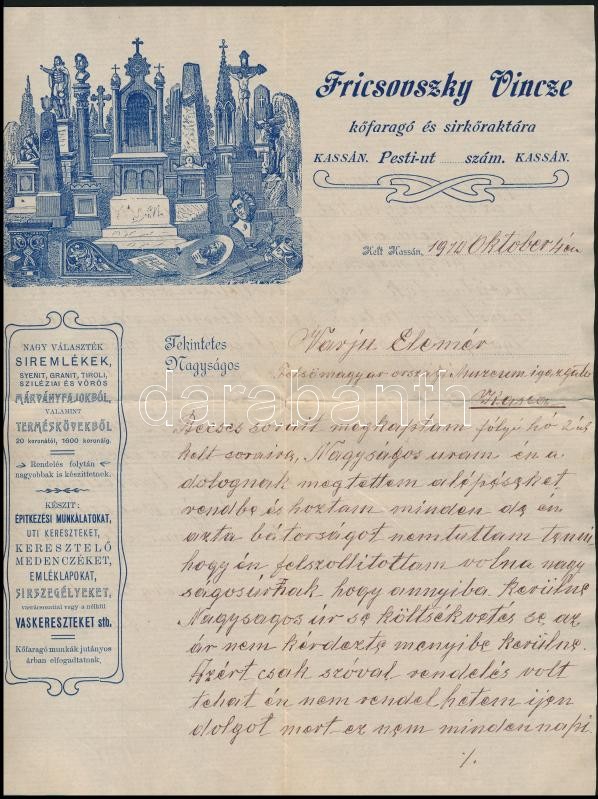 Fricsovszky Vincze
kőfaragó és sirkőraktára
KASSÁN. Pesti-ut ........ szám. KASSÁN.
Kelt Kassán, 1910 Oktober 4én
NAGY VÁLASZTÉK
SIREMLÉKEK,
SYENIT, GRANIT, TIROLI,
SZILÉZIAI ÉS VÖRÖS
MÁRVÁNYFAJOKBÓL,
VALAMINT
TERMÉSKÖVEKBŐL
20 koronától, 1600 koronáig.
Rendelés folytán
nagyobbak is készittetnek.
KÉSZIT:
ÉPITKEZÉSI MUNKÁLATOKAT,
UTI KERESZTEKET,
KERESZTELŐ
MEDENCZÉKET,
EMLÉKLAPOKAT,
SIRSZEGÉLYEKET,
vasrácsozattal vagy a nélkül
VASKERESZTEKET stb.
Kőfaragó munkák jutányos
árban elfogadtatnak.
Tekintetes
Nagyságos
Varju Elemér
Felsömagyarországi Muzeum igazgató
Kassa
darabanth
Becses sorait megkaptam folyó hó 2án
kelt soraira, Nagyságos uram én a
dolognak megtettem a lépéseket
rendbe is hoztam minden de én
azta bátorságot nemtuttam tenni
hogy én felszollitottam volna nagy
ságosúrnak hogy annyiba kerülne
Nagyságos úr se költsékvetés se az
ár nem kérdezte menyibe kerülne.
Azért csak szóval rendelés volt
tehat én nem rendelhetem ijen
dolgot mert ez nem mindennapi
./.